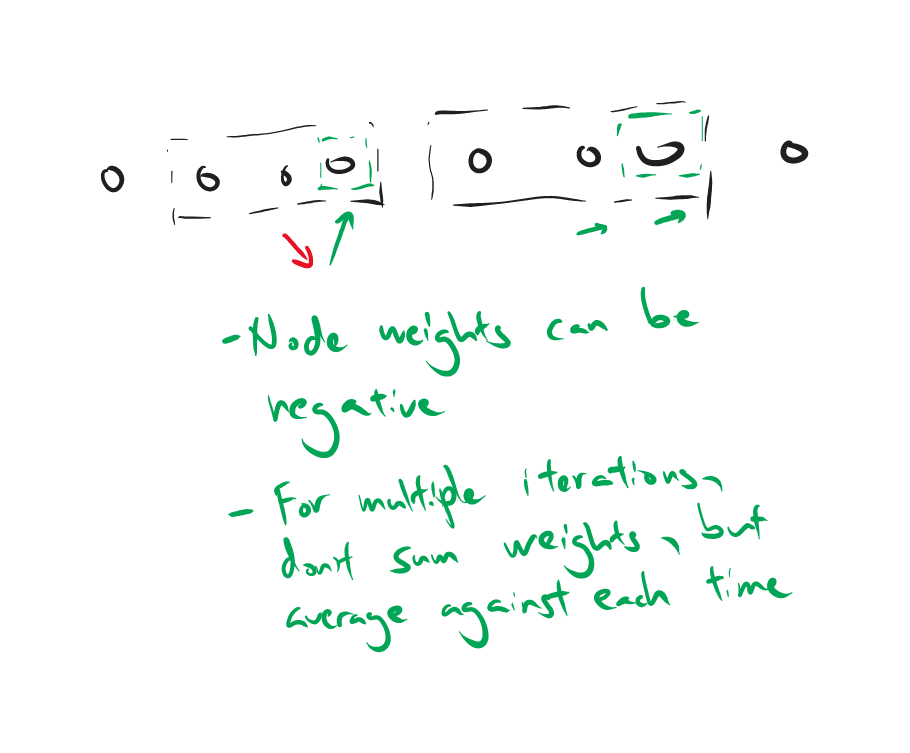 - Node weights can be
negative
- For multiple iterations,
don't sum weights, but
average against each time